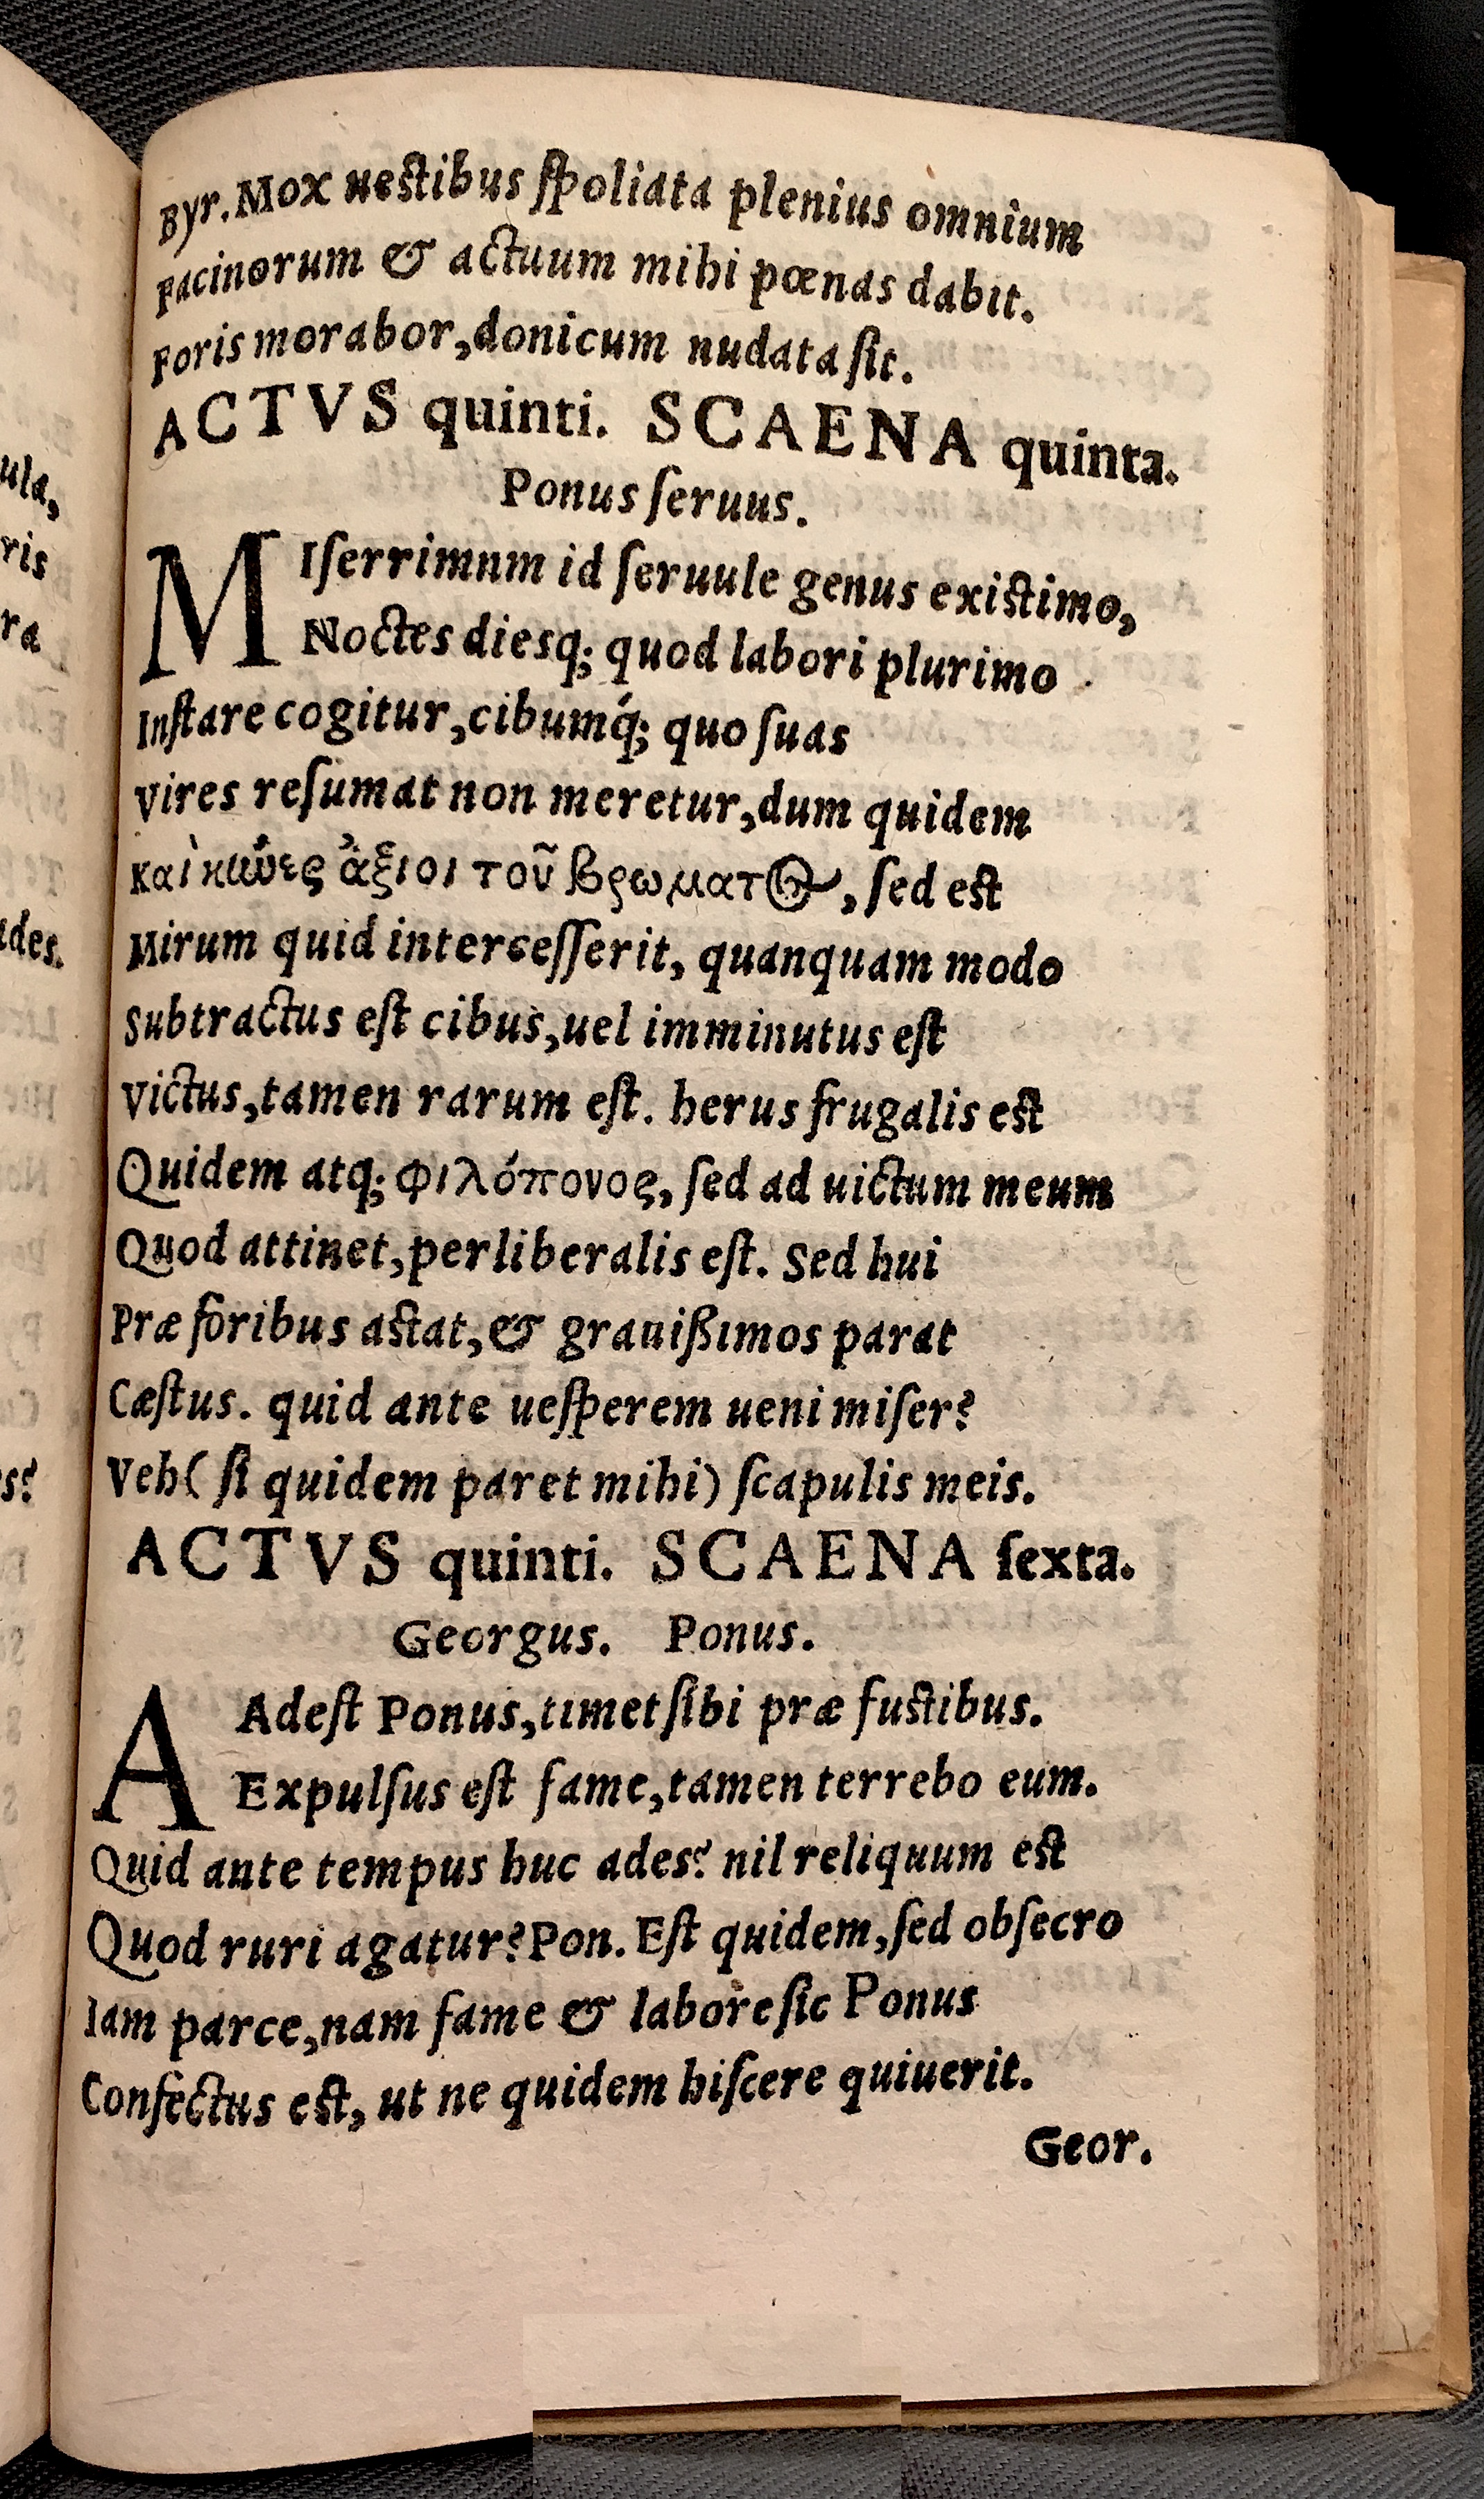 Byr. Mox uestibus ſpoliata plenius omnium
Facinorum & actuum mihi pœnas dabit.
Foris morabor, donicum nudata ſit.
ACTVS quinti. SCAENA quinta.
Ponus ſeruus.
MIſerrimum id ſeruule genus existimo,
Noctes diesq; quod labori plurimo
Inſtare cogitur, cibumq́; quo ſuas
Vires reſumat non meretur, dum quidem
καὶ κύνες ἄξιοι τοῦ βρωματος, ſed est
Mirum quid interceſſerit, quanquam modo
Subtractus eſt cibus, uel imminutus eſt
Victus, tamen rarum eſt. herus frugalis est
Quidem atq; φιλόπονος, ſed ad uictum meum
Quod attinet, perliberalis eſt. Sed hui
Præ foribus astat, & grauißimos parat
Cæſtus. quid ante ueſperem ueni miſer?
Veh( ſi quidem paret mihi) ſcapulis meis.
ACTVS quinti. SCAENA ſexta.
Georgus. Ponus.
AAdeſt Ponus, timet ſibi præ fustibus.
Expulſus eſt fame, tamen terrebo eum.
Quid ante tempus huc ades? nil reliquum est
Quod ruri agatur? Pon. Eſt quidem, ſed obſecro
Iam parce, nam fame & labore ſic Ponus
Confectus est, ut ne quidem hiſcere quiuerit.
Geor.
ula,
ris
ra
ades.
s?